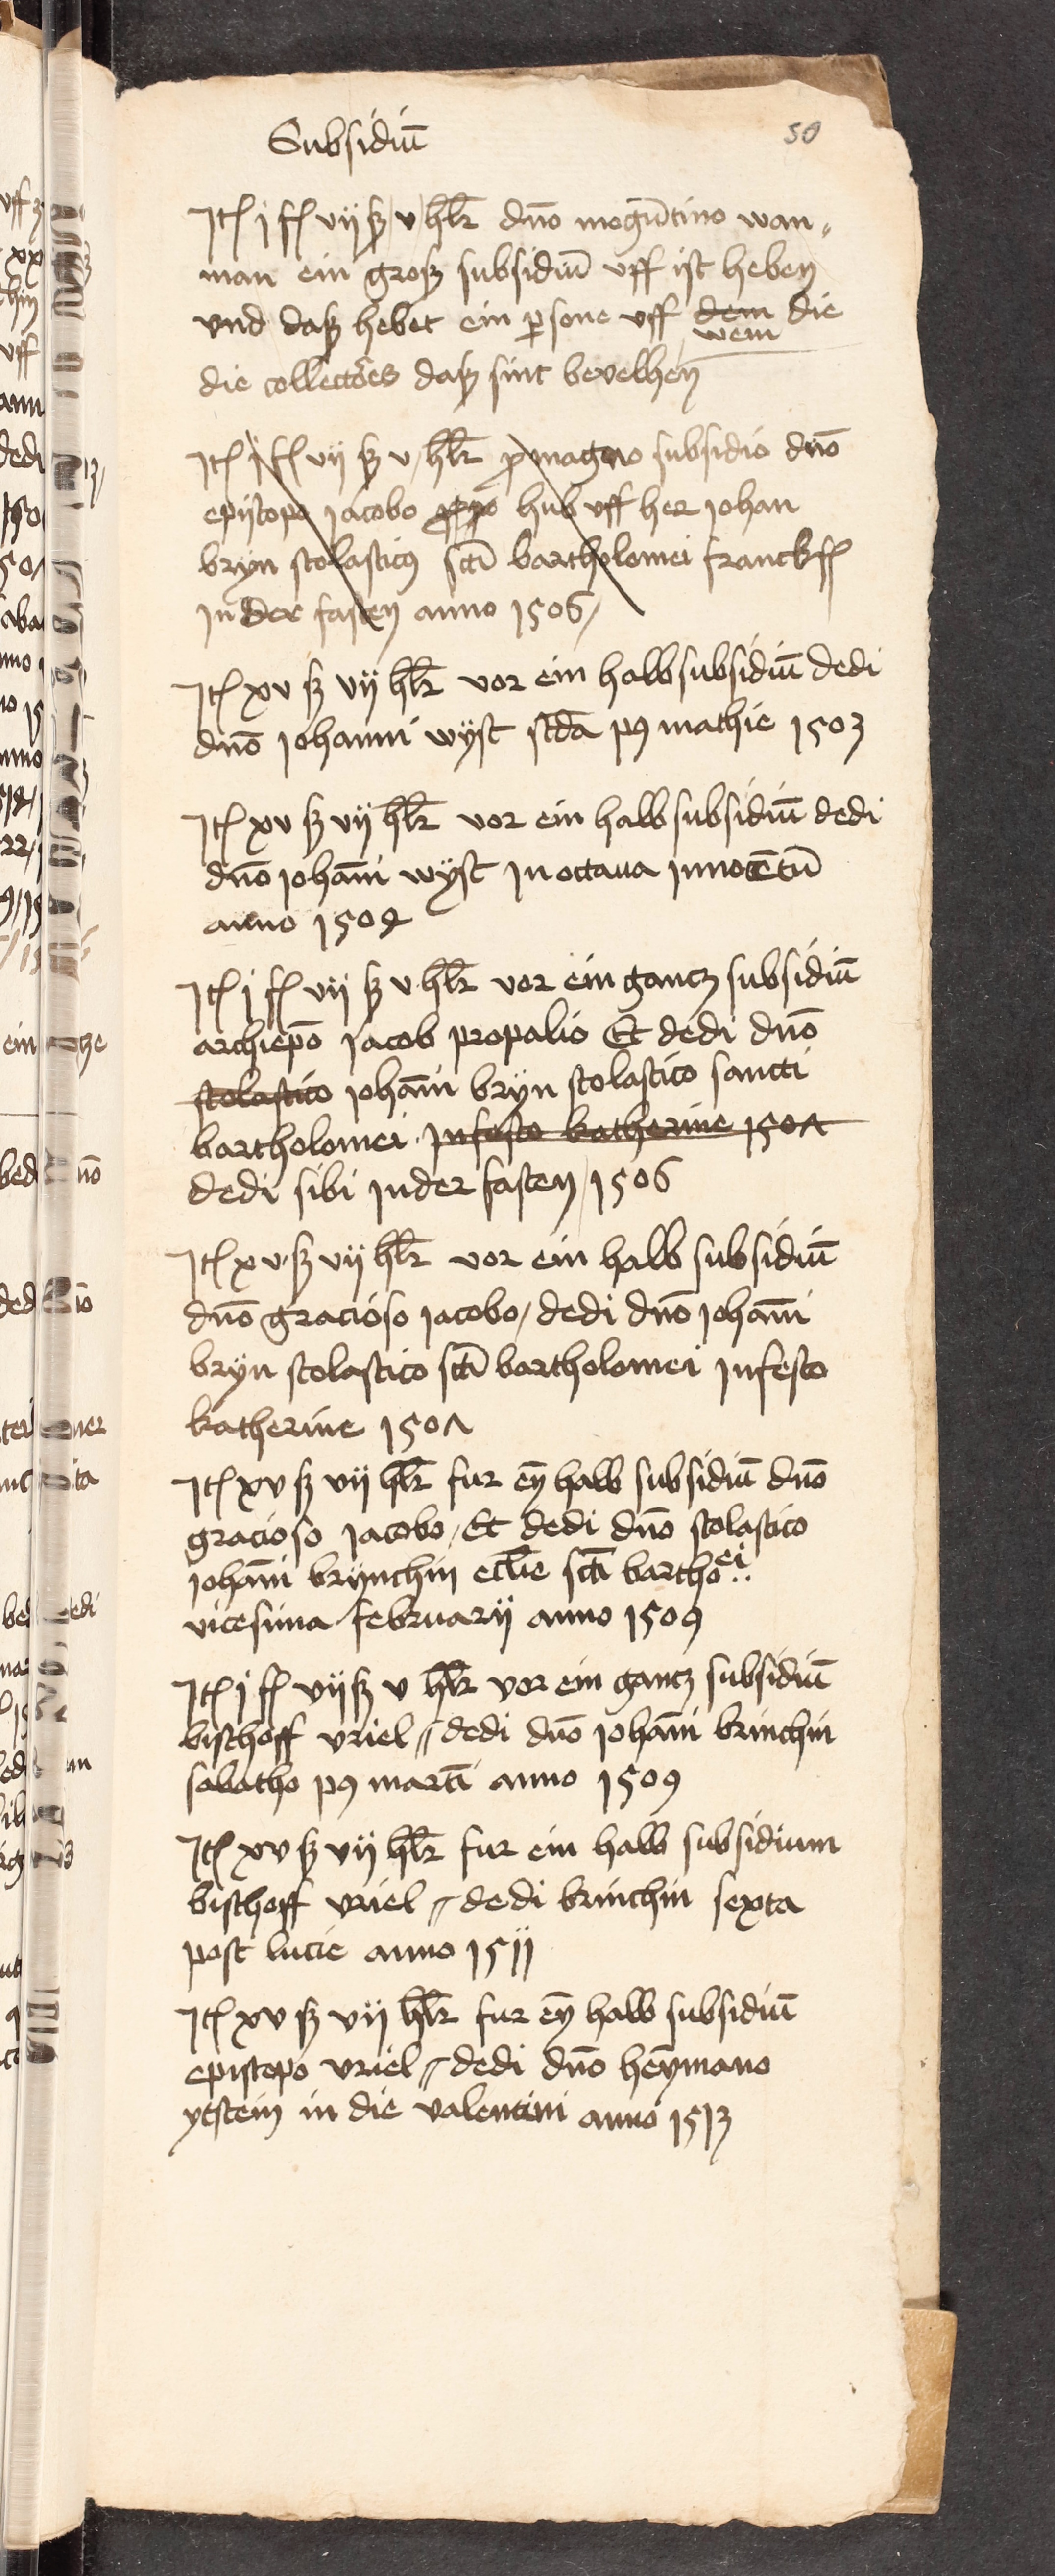 Subsidiū 50
Itꝭ j fꝭ vij ß v hlr̄ dnō mogūtino wan
man ein groß subsidiū vff ist heben
vnd daß hebet ein ꝑsone vff dem wem die
die collectōres daß sint bevelhen
Itꝭ j fꝭ vij ß v hlr̄ ꝓ magno subsidio dnō
episcopo jacobo hub vff her johan
bryn scolasticꝰ sctī bartholomei franckfꝭ
in der fasten anno 1506
Itꝭ xv ß vij hlr̄ vor ein halb subsidiū dedi
dnō johanni wyst scdā pꝰ mathie 1503
Itꝭ xv ß vij hlr̄ vor ein halb subsidiū dedi
dnō johāni wyst in octaua innocētū
anno 1504
Itꝭ j fꝭ vij ß v hlr̄ vor ein gancz subsidiū
archiepō jacob pro palio Et dedi dnō
scolastico johāni bryn scolastico sancti
bartholomei in festo katherine 1507
dedi sibi in der fasten 1506
Itꝭ xv ß vij hlr̄ vor ein halb subsidiū
dnō gracioso jacobo / dedi dnō johāni
bryn scolastico sctī bartholomei in festo
katherine 1507
Itꝭ xv ß vij hlr̄ fur eȳ halb subsidiū dnō
gracioso jacobo / Et dedi dnō scolastico
johāni brynchin eclīe sctī bartho ei
vicesima februarij anno 1509
Itꝭ j fꝭ vij ß v hlr̄ vor ein gancz subsidiū
bischoff vriel // dedi dnō johāni brinchin
sabatho pꝰ martī anno 1509
Itꝭ xv ß vij hlr̄ fur ein halb subsidium
bischoff vriel // dedi brinchin sexta
post lucie anno 1511
Itꝭ xv ß vij hlr̄ fur eȳ halb subsidiū
episcopo vriel // dedi dnō heȳmano
ytstein in die valentini anno 1513